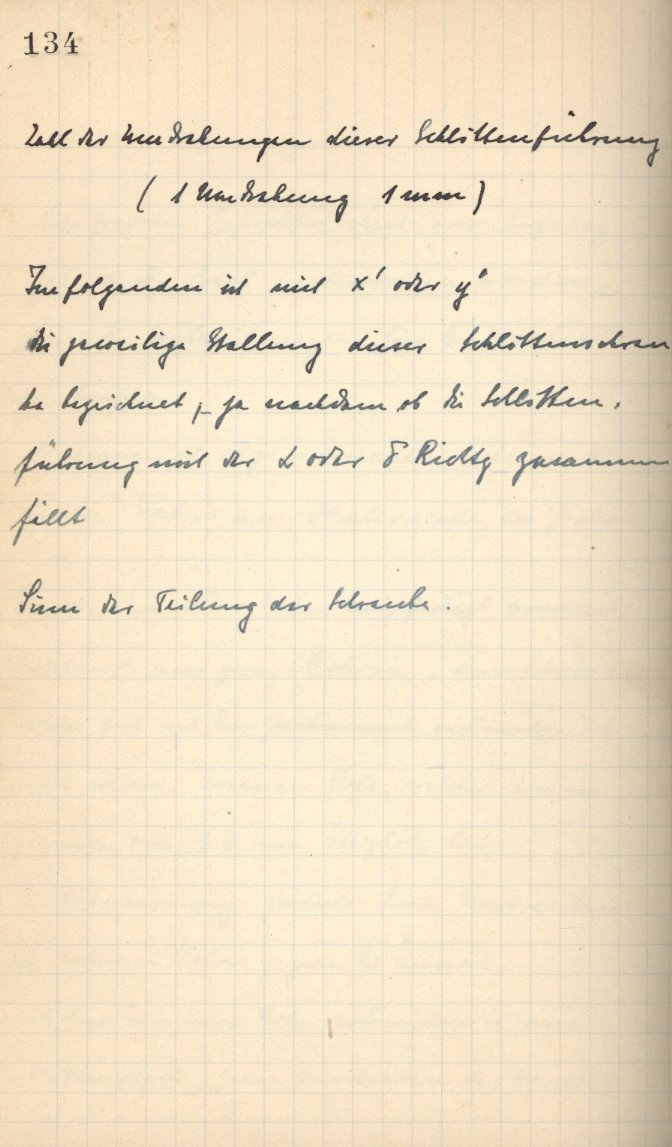 134
Zahl der Umdrehungen dieser Schlittenführung
( 1 Umdrehung 1 mm )
Im folgenden ist mit x' oder y'
die jeweilige Stellung dieser Schlittenschrau
be bezeichnet, je nachdem ob die Schlitten-
führung mit der α oder δ Richtg zusammen
fällt
Sinn der Teilung der Schraube.